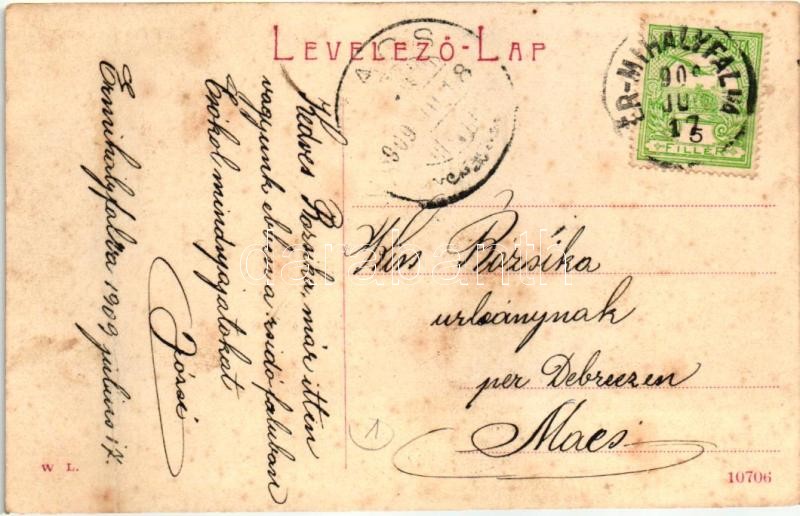 LEVELEZŐ-LAP
ÉR-MIHÁLYFALVA
909
JUL
17
5
FILLÉR
MACS
909 JUL 18
Kedves Rozsika, már itten
vagyunk ebben a zsidó faluban
Csókol mindnyájatokat
Józsi
Érmihályfalva 1909 július 17.
Kiss Rózsika
urleánynak
per Debreczen
Macs
1
W L.
10706
darabanth